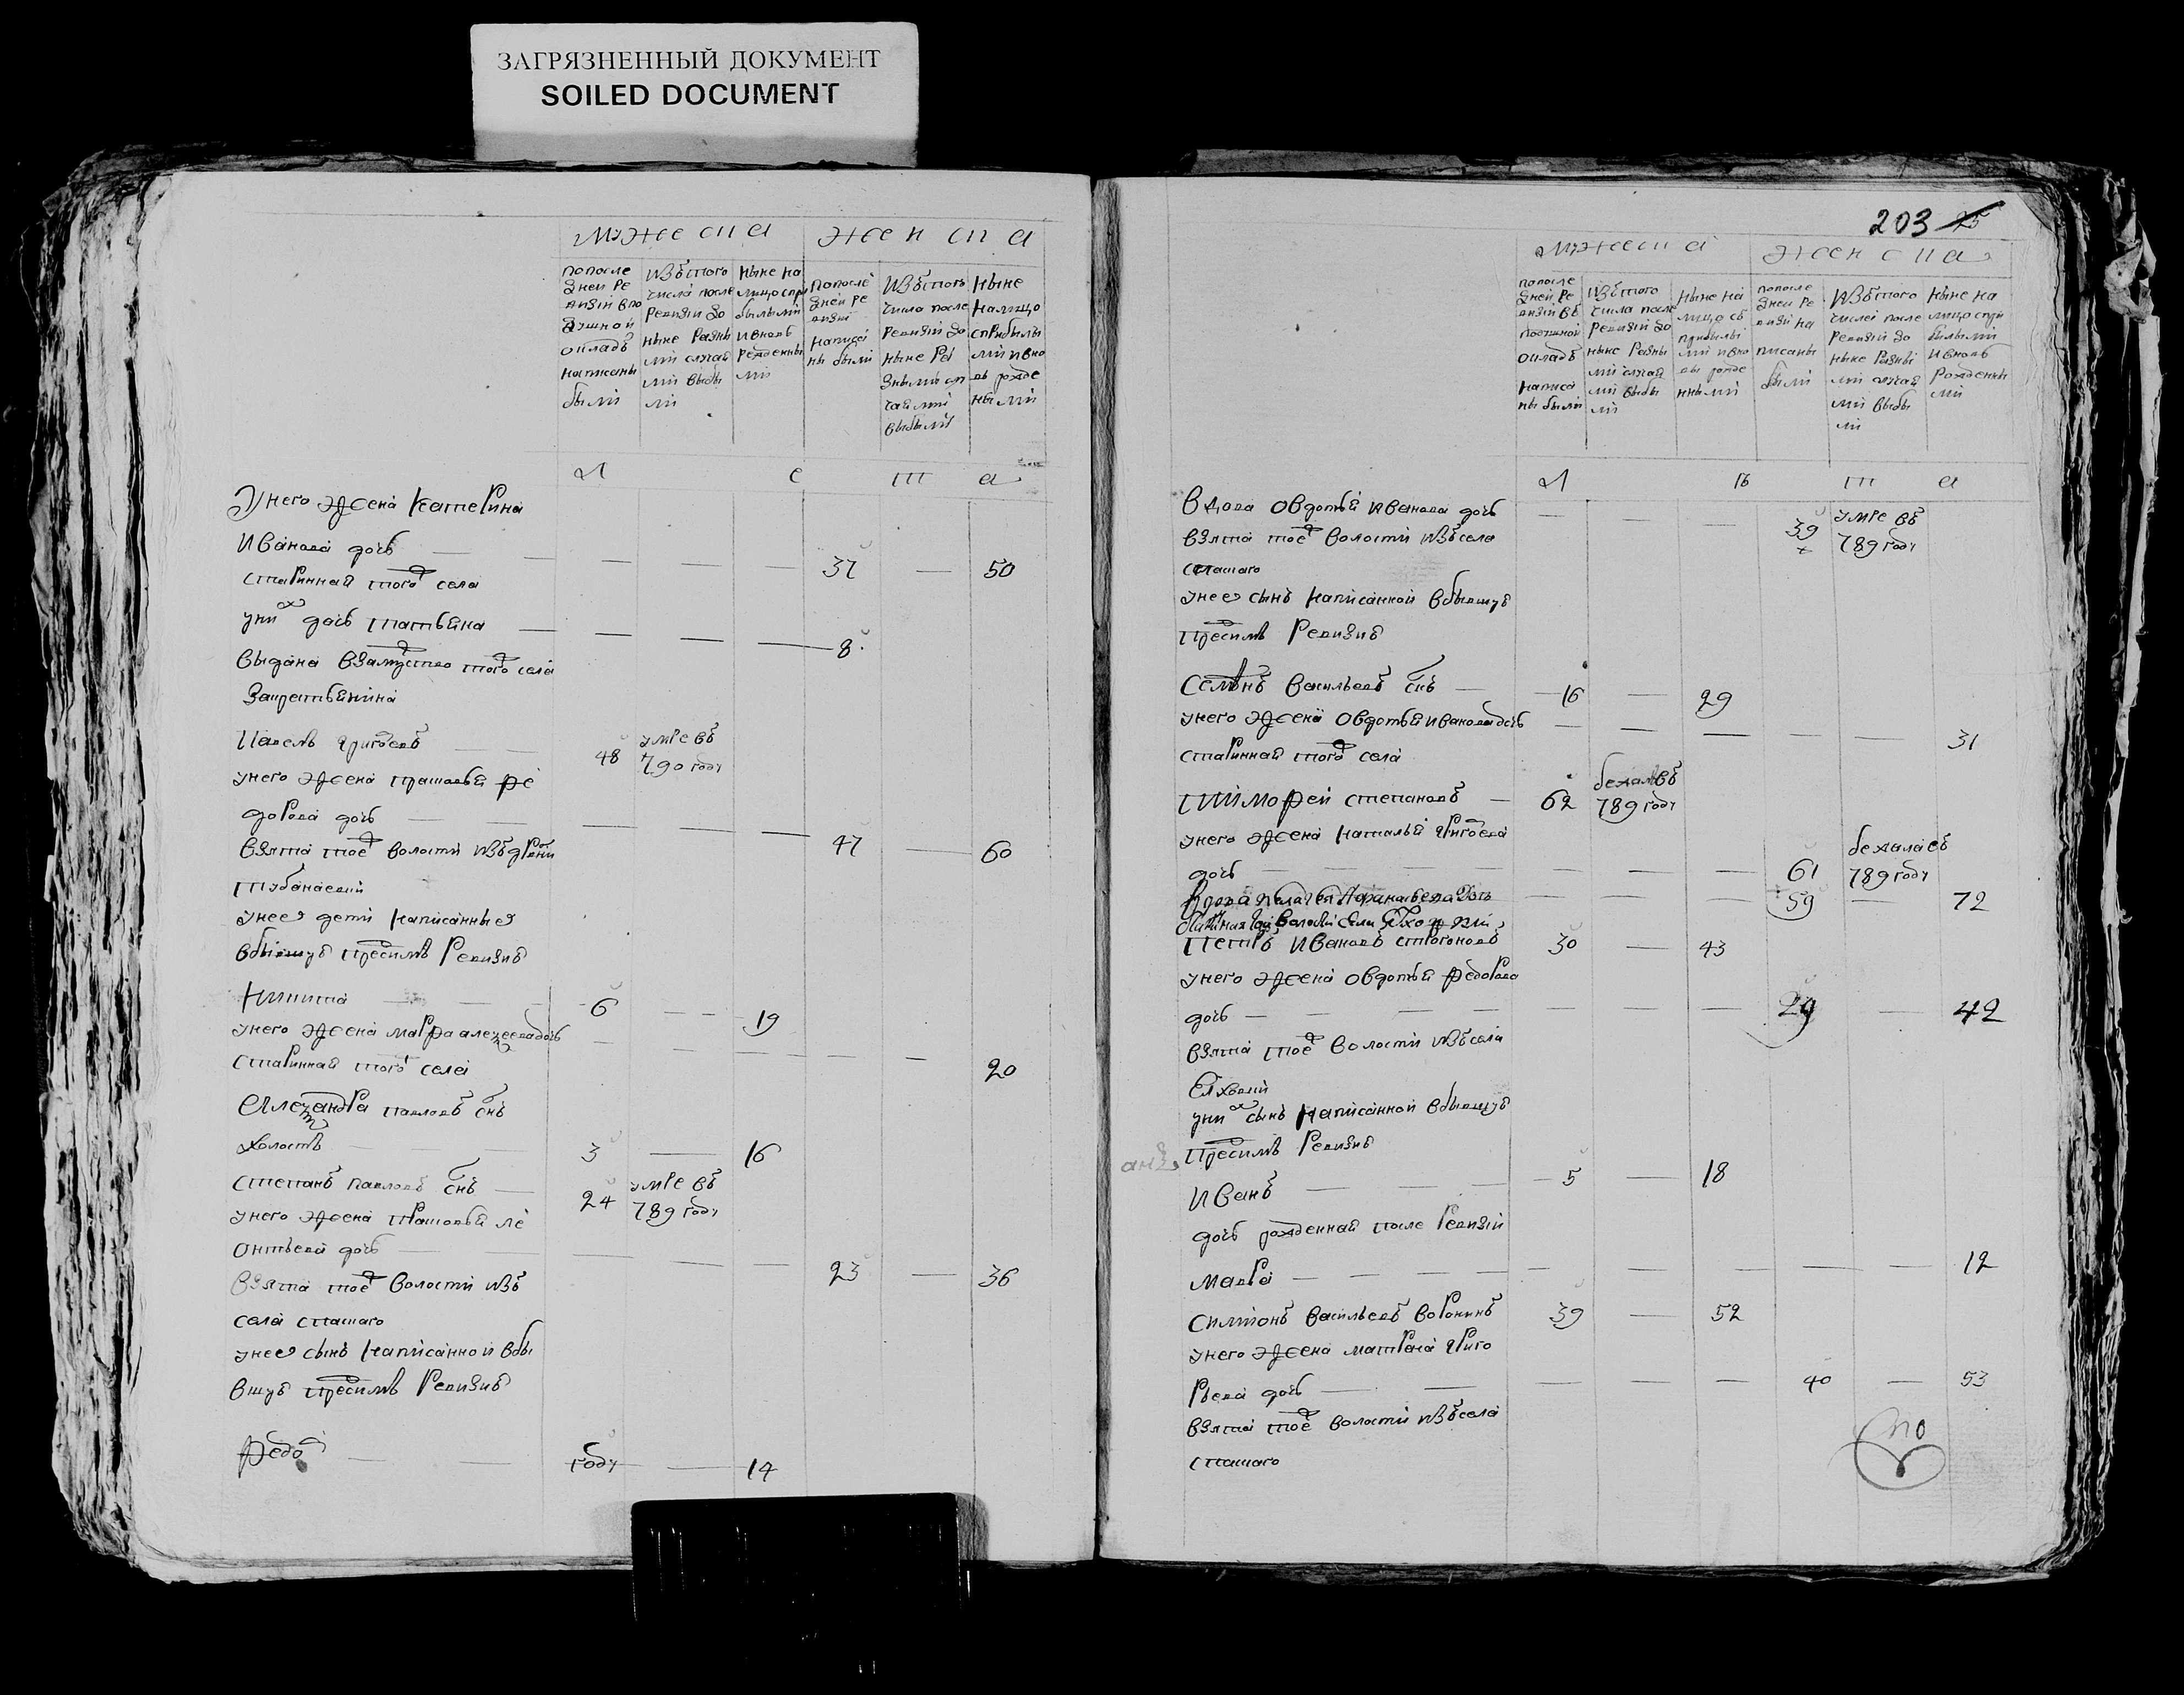 ЗАГРЯЗНЕННЫЙ ДОКУМЕНТ
SOILED DOCUMENT
мужеска женска
по после дней ре визии в по душной окладъ написаны были
изътого числа после ревизии до ныне разны ми случая ми выбы ли
ныне на лицо спри былыми и вновь рожденны ми
по после дней ре визии написа ны были
изътого числа после ревизии до ныне ра зными слу чаями выбыли
ныне на лицо сприбылы ми и вно вь рожде ными
л е т а
унего жена катерина
иванова дочь 37 50
старинная того села
уних дочь татьяна 8
выдана взамуство того села
Павелъ григоревъ 48 умре въ 790 году
унего жена прасковья фе
дорова дочь 47 60
взята тое волости изъ дрвни
унее дети написанные
вбывшую пресимъ ревизию
Никита 6 19
унего жена мавра алеѯеева дочь
стариннай того села 20
Алеѯандра павловъ снъ
холостъ 3 16
степанъ павловъ снъ 24 умре въ 789 году
унего жена прасковья ле
онтьева дочь 23 36
взята тое волости изъ
села спаского
унее сынъ написанной вбы
вшую пресимъ ревизию
Федоръ году 14
203 25
мужеска женска
по после дней ре визии въ подушной окладъ написа ны были
изътого числа после ревизии до ныне разны ми случая ми выбы ли
ныне на лицо съ прибылы ми и вно вь рожде нными
по после дней ре визии на писаны были
изътого числа после ревизии до ныне разны ми случая ми выбы ли
ныне на лицо спри былыми и вновь рожденны ми
л ѣ т а
вдова овдотья иванова дочь 39 умре въ 789 году
взята тое волости изъ села
спаского
унее сынъ написанной вбывшую
пресимъ ревизию
Семенъ васильевъ снъ 16 29
унего жена овдотья иванова дочь 31
стариннай того села
Тимофей степановъ 62 бежалъ въ 789 году
унего жена наталья григорева
дочь 61 бежала въ 789 году
Вдова Пелагея Афанасьева дочь 59 72
Петръ ивановъ строгоновъ 30 43
унего жена овдотья федорова
дочь 29 42
взята тое волости изъ села
уних сынъ написанной вбывшую
пресимъ ревизию
иванъ 5 18
дочь рожденная после ревизии
мавра 12
симионъ васильевъ воронинъ 39 52
унего жена матрена григо
рьева дочь 40 53
взята тое волости изъ села
спаского
по